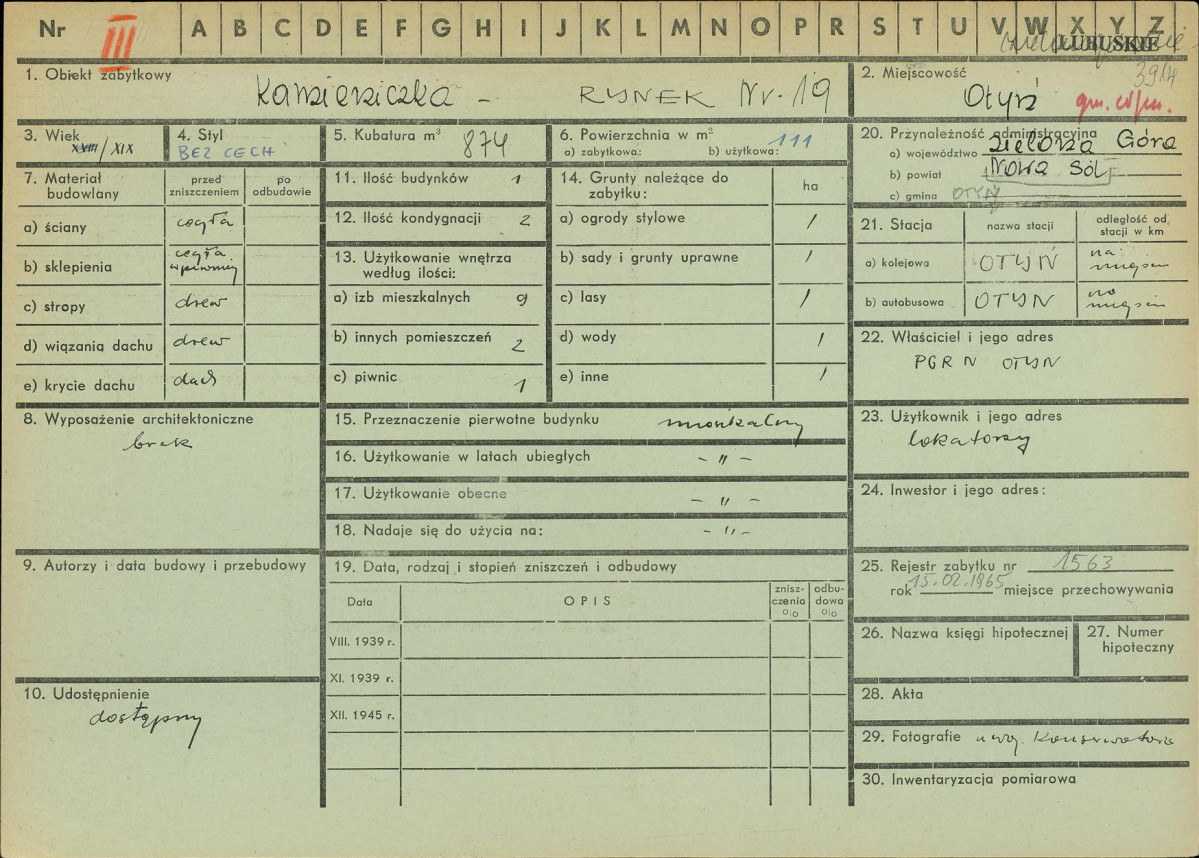 Nr III A B C D E F G H I J K L M N O P R S T U V W X Y Z
LUBUSKIE
3914
1. Obiekt zabytkowy
Kamieniczka - RYNEK Nr. 19
2. Miejscowość
Otyń
gm. loco
3. Wiek
XVIII/XIX
4. Styl
BEZ CECH
5. Kubatura m³ 874
6. Powierzchnia w m²
a) zabytkowa: b) użytkowa: 111
20. Przynależność administracyjna
a) województwo Zielona Góra
b) powiat Nowa Sól
c) gmina OTYŃ
7. Materiał budowlany
przed zniszczeniem
po odbudowie
a) ściany cegła
b) sklepienia cegła w piwnicy
c) stropy drew
d) wiązania dachu drew
e) krycie dachu dach
11. Ilość budynków 1
12. Ilość kondygnacji 2
13. Użytkowanie wnętrza według ilości:
a) izb mieszkalnych 9
b) innych pomieszczeń 2
c) piwnic 1
14. Grunty należące do zabytku:
ha
a) ogrody stylowe /
b) sady i grunty uprawne /
c) lasy /
d) wody /
e) inne /
21. Stacja
nazwa stacji
odległość od stacji w km
a) kolejowa OTYŃ na miejscu
b) autobusowa OTYN na miejscu
22. Właściciel i jego adres
PGRN OTYN
8. Wyposażenie architektoniczne
brak
15. Przeznaczenie pierwotne budynku mieszkalny
16. Użytkowanie w latach ubiegłych - " -
17. Użytkowanie obecne - " -
18. Nadaje się do użycia na: - " -
23. Użytkownik i jego adres
lokatorzy
24. Inwestor i jego adres:
9. Autorzy i data budowy i przebudowy
19. Data, rodzaj i stopień zniszczeń i odbudowy
Data
OPIS
zniszczenia o|o
odbudowa o|o
VIII. 1939 r.
XI. 1939 r.
XII. 1945 r.
25. Rejestr zabytku nr 1563
rok 15.02.1965 miejsce przechowywania
26. Nazwa księgi hipotecznej
27. Numer hipoteczny
10. Udostępnienie
dostępny
28. Akta
29. Fotografie u woj. Konserwatora
30. Inwentaryzacja pomiarowa